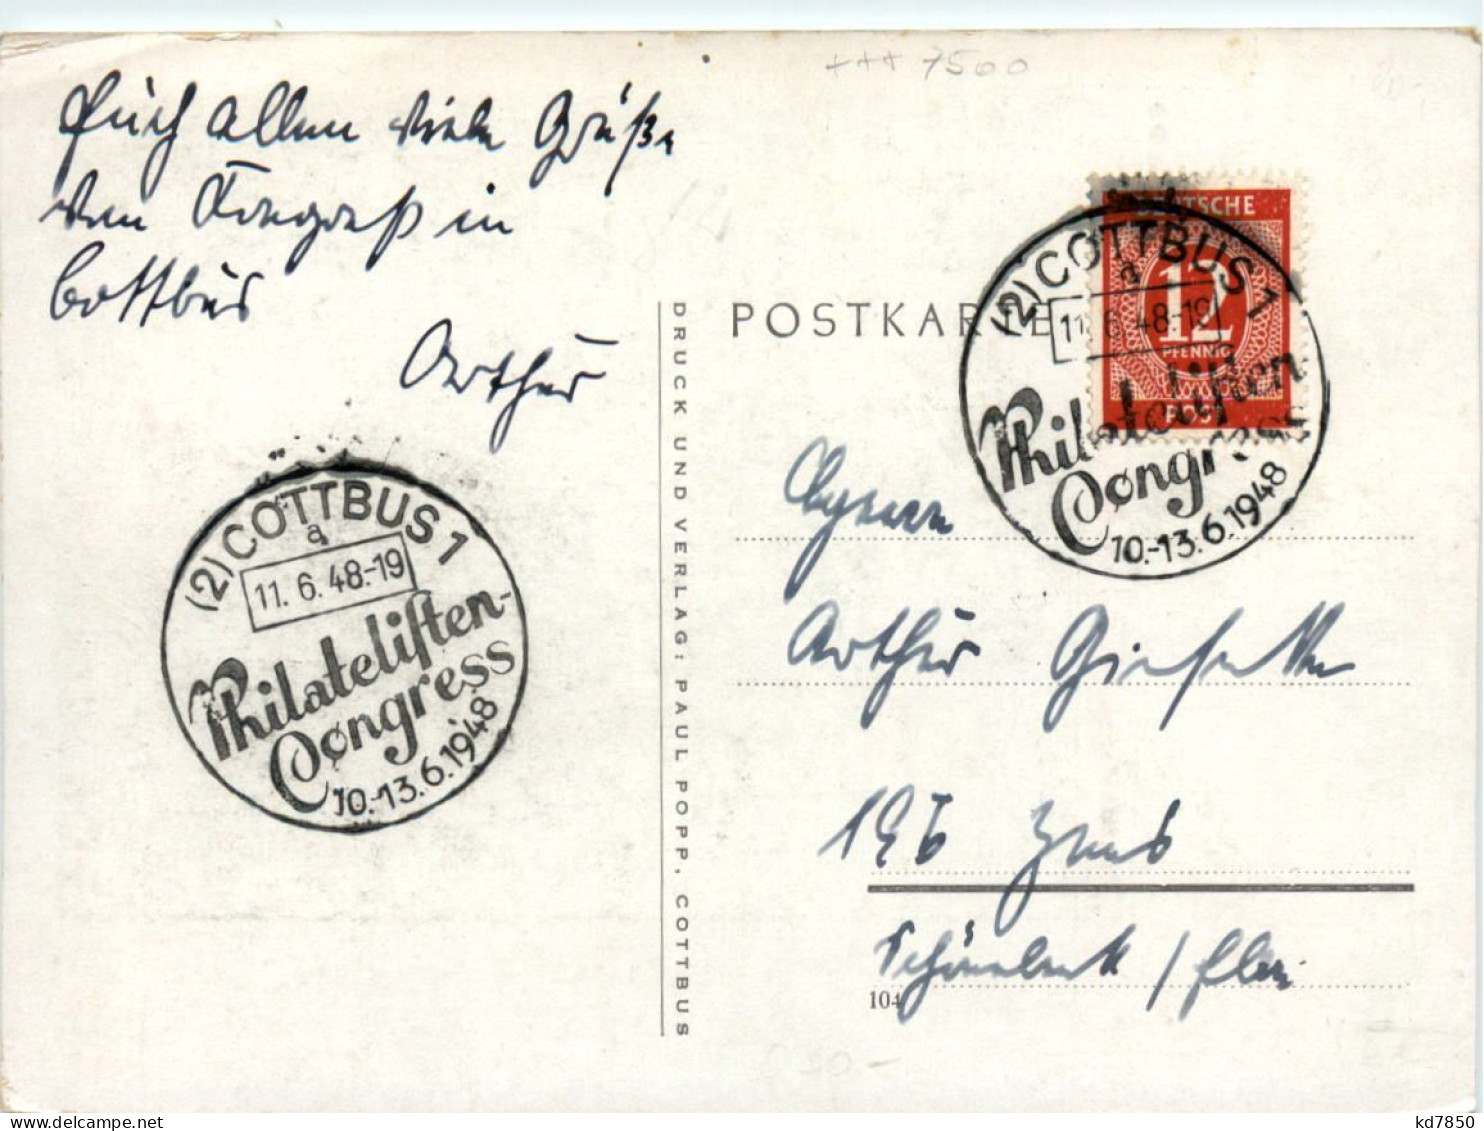 +++ 7500
Euch allen viele Grüße
vom Kongreß in
Cottbus
Arthur
POSTKARTE
DEUTSCHE
12
PFENNIG
POST
(2) COTTBUS 1
a
11.6.48.-19
Philatelisten-
Congress
10.-13.6.1948
(2) COTTBUS 1
a
11.6.48.-19
Philatelisten-
Congress
10.-13.6.1948
DRUCK UND VERLAG: PAUL POPP, COTTBUS
Arthur
19b
Schönebeck / Elbe
104
kd7850